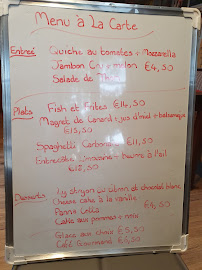 Menu à La Carte
Entreé
Quiche au tomates + Mozzarella
Jambon Cru, melon €4,50
Salade de
Plats
Fish et Frites €14,50
Magret de Canard : jus d'miel + balsamique
€15,50
Spaghetti Carbonara €11,50
Entrecôte - beurre à l'ail
Desserts
au citron et chocolat blanc
Cheese cake à la vanille
Panna Cotta €4,50
Cake aux pommes + noix
Glace aux choix €5,50
Café Gourmand €6,50